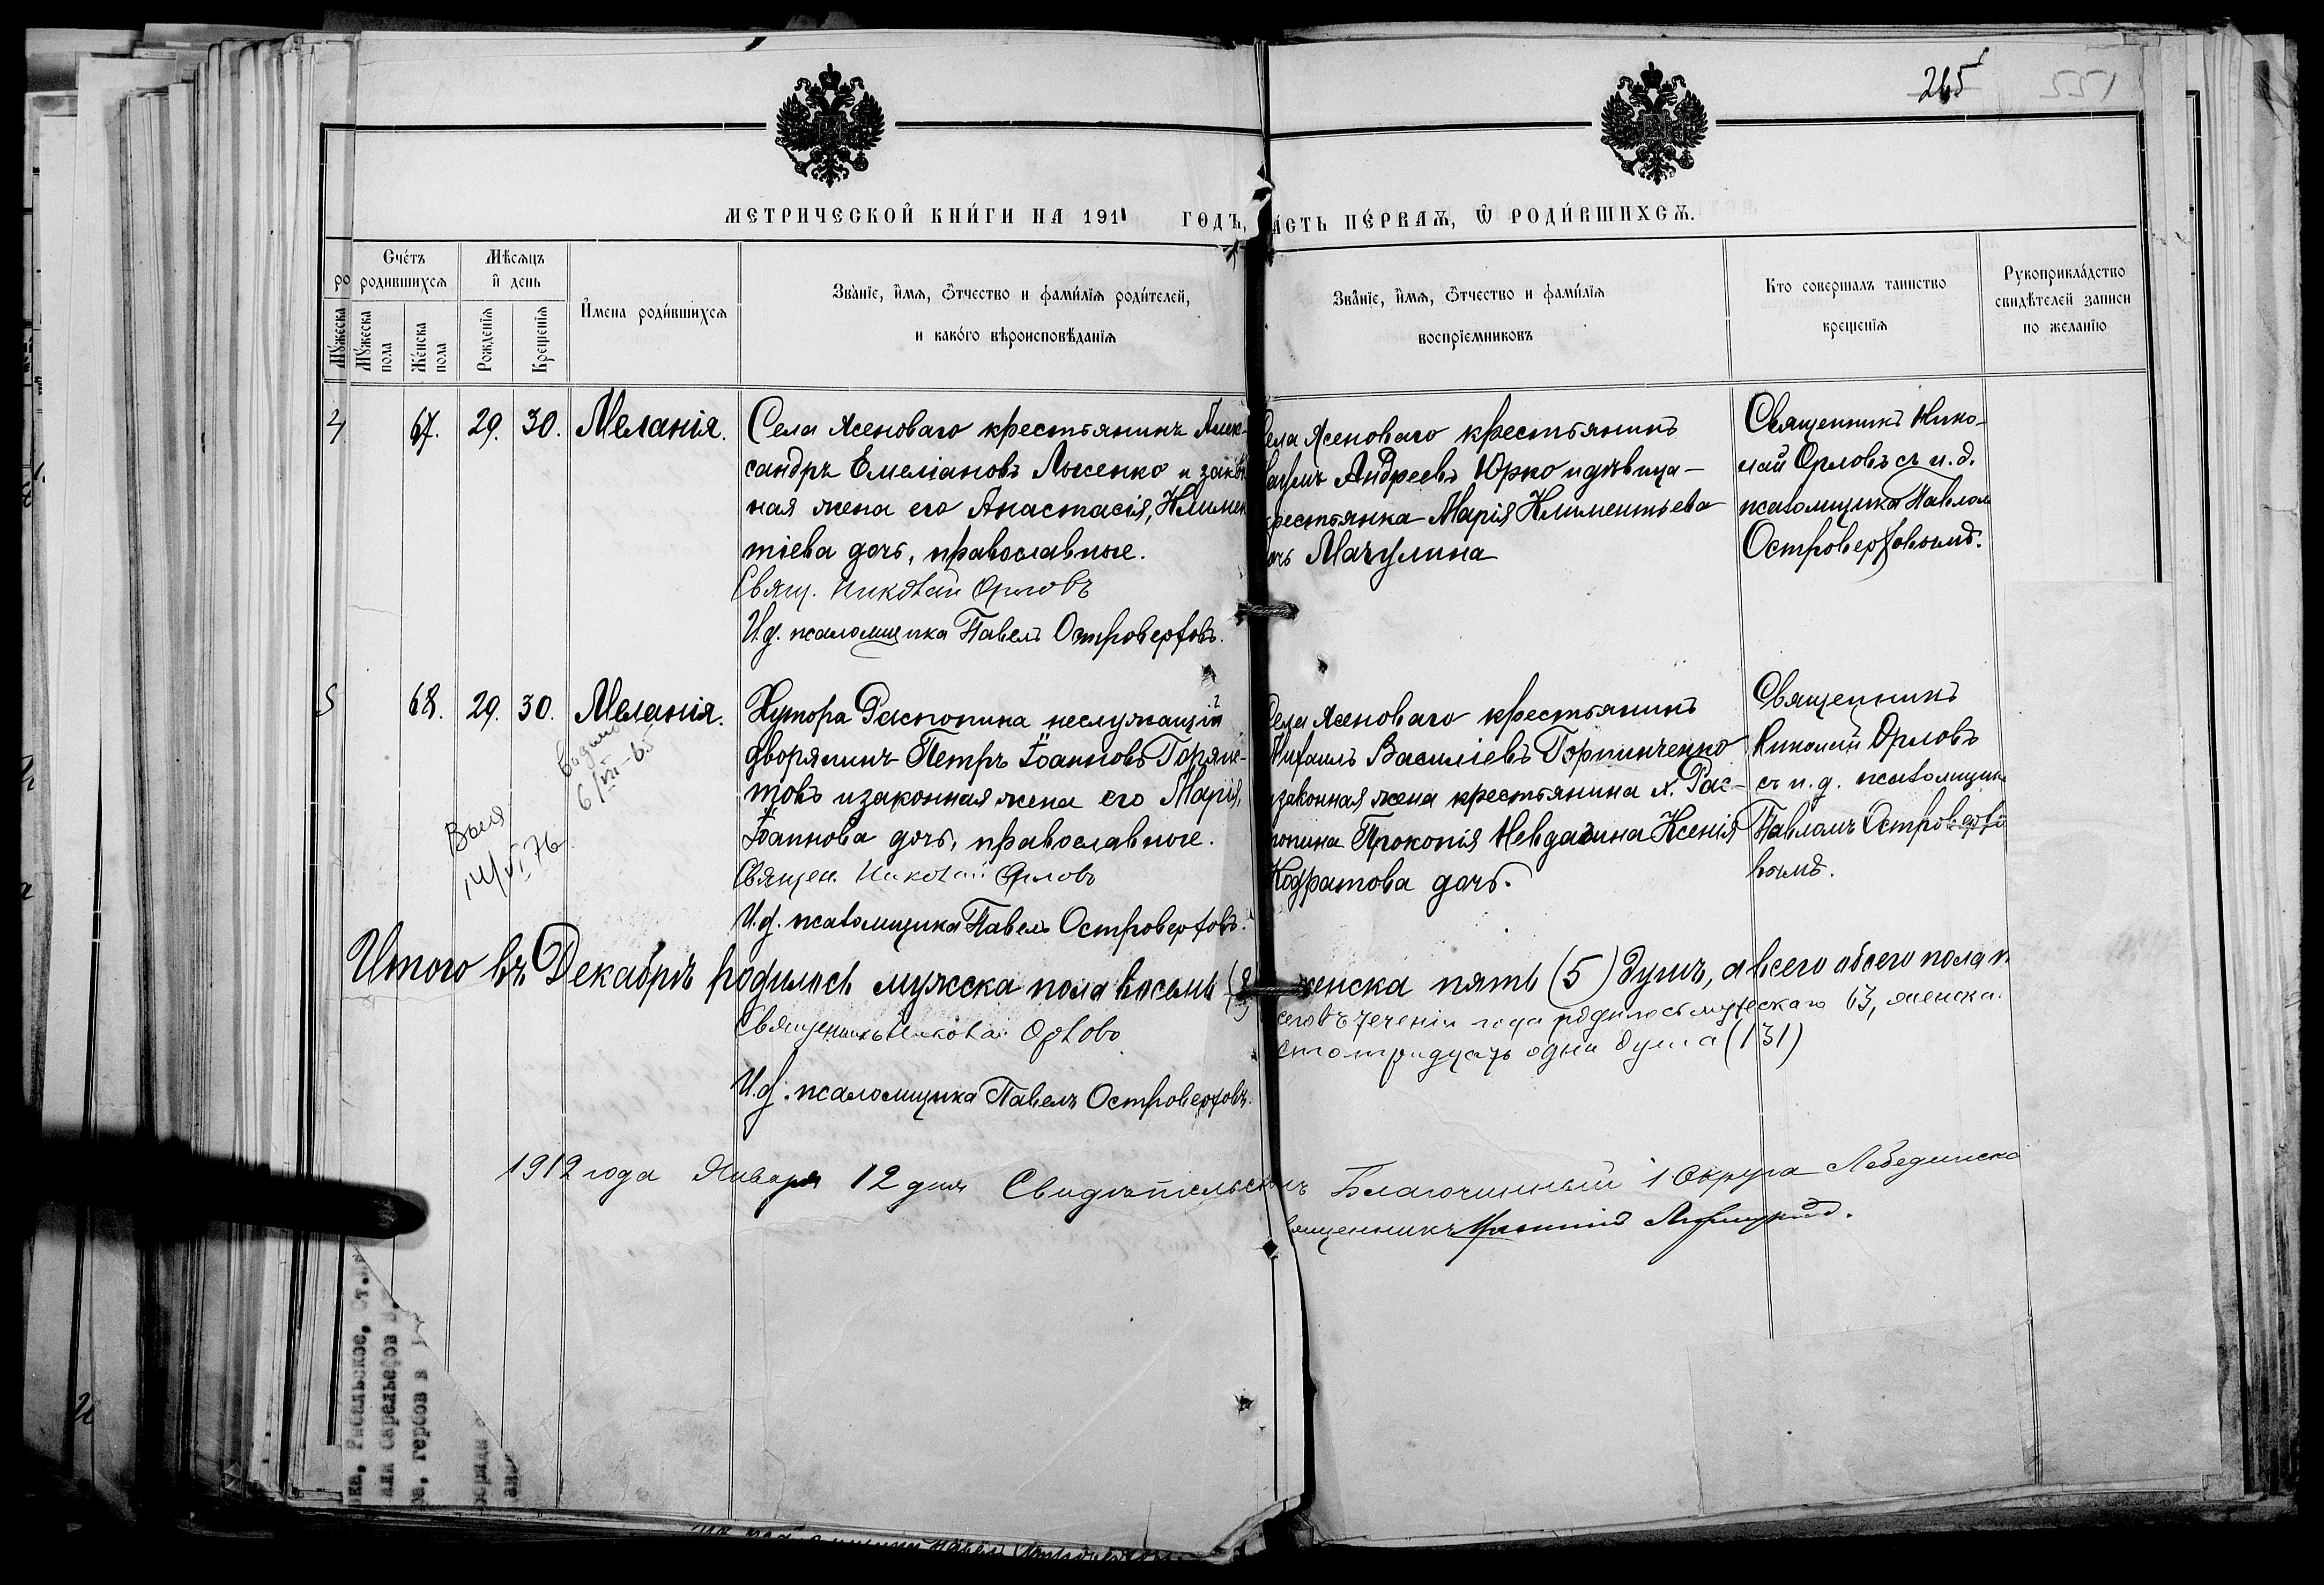 265
551
МЕТРИЧЕСКОЙ КНИГИ НА 1911 ГОДЪ, АСТЬ ПЕРВАЯ, Ѿ РОДИВШИХСЯ.
ро
Мужеска
Счетъ родившихся
Мужеска пола
Женска пола
Мѣсяцъ и день
Рожденія
Крещенія
Имена родившихся
Званіе, имя, ѿтчество и фамилія родителей,
и какого вѣроисповѣданія
Званіе, имя, ѿтчество и фамилія
воспріемниковъ
Кто совершалъ таинство
крещенія
Рукоприкладство
свидѣтелей записи
по желанію
4
67. 29. 30. Меланія.
Села Ясеноваго крестьянинъ Алек-
сандръ Емеліановъ Лысенко и закон
ная жена его Анастасія, Климен
тіева дочь, православные.
Свящ. Николай Орловъ
И.д. псаломщика Павелъ Островерховъ.
ела Ясеноваго крестьянинъ
Наумъ Андреевъ Юрко и дѣвица-
рестьянка Марія Климентьева
очь Мачулина
Священникъ Нико-
лай Орловъ съ и.д.
псаломщика Павлом
Островерховымъ.
5
68. 29. 30. Меланія.
Хутора Распопина неслужащій
дворянинъ Петръ Іоанновъ Горяис-
товъ и законная жена его Марія,
Іоаннова дочь, православные.
Священ. Николай Орловъ
И.д. псаломщика Павелъ Островерховъ.
ела Ясеноваго крестьянинъ
Михаилъ Василіевъ Горпинченко
изаконная жена крестьянина х. Рас-
попина Прокопія Невдахина Ксенія
Кодратова дочь.
Священникъ
Николай Орловъ
съ и.д. псаломщик
Павломъ Островерхо
вымъ.
6/VII-65
14/VI 76
Итого въ Декабрѣ родилось мужска пола восемь (8)
женска пять (5) душъ, а всего обоего пола
Священникъ Николай Орловъ
И.д. псаломщика Павелъ Островерховъ.
сего въ теченіи года родилось мужескаго 63, женска.
сто тридцать одна душа (131)
1912 года Января 12 дня Свидѣтельствовалъ Благочинный 1 Округа Лебединска
вященникъ